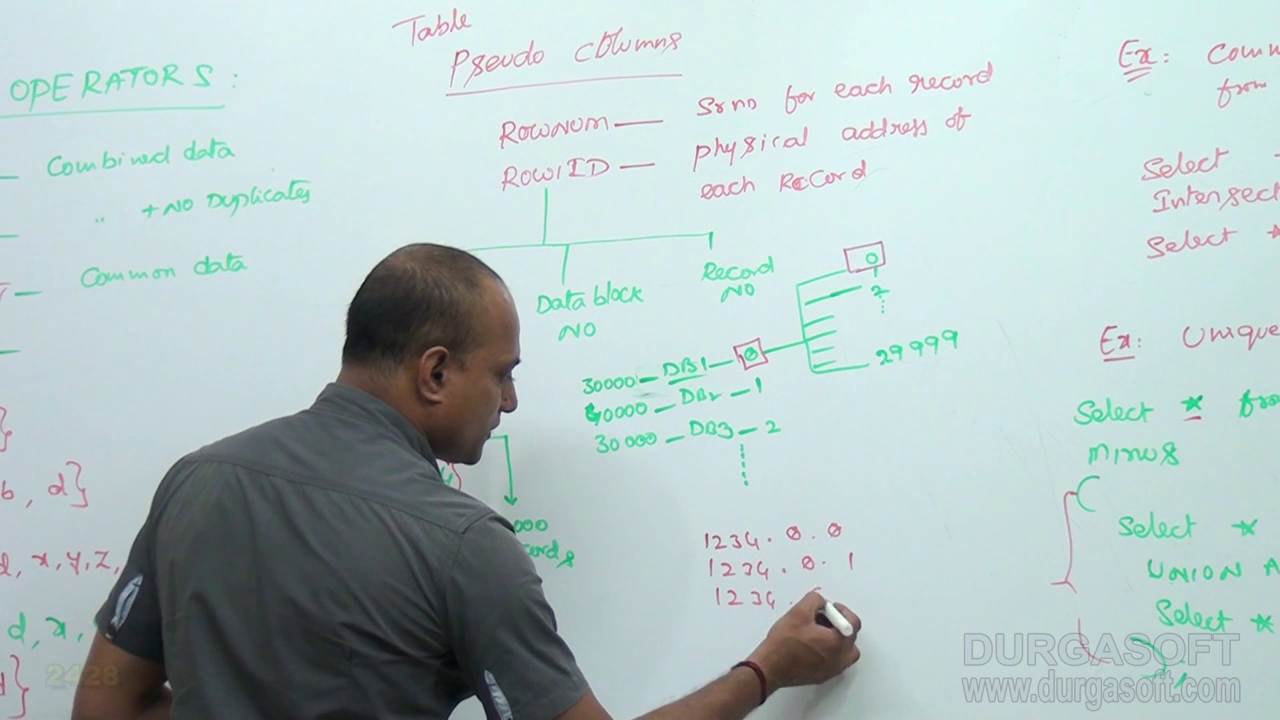 OPERATORS:
Combined data
" + NO Duplicates
Common data
b, d}
d, x, y, z,
d, x,
Table
Pseudo columns
ROWNUM — Srno for each record
ROWID — physical address of
each Record
Data block
NO
Record
NO
0
1
2
29999
30000 — DB1 — 0
40000 — DB2 — 1
30000 — DB3 — 2
1234 . 0 . 0
1234 . 0 . 1
1234 .
Ex: Comm
from
Select
Intersect
Select *
Ex: Unique
Select * from
minus
(
Select *
UNION A
Select *
);
2428
DURGASOFT
www.durgasoft.com